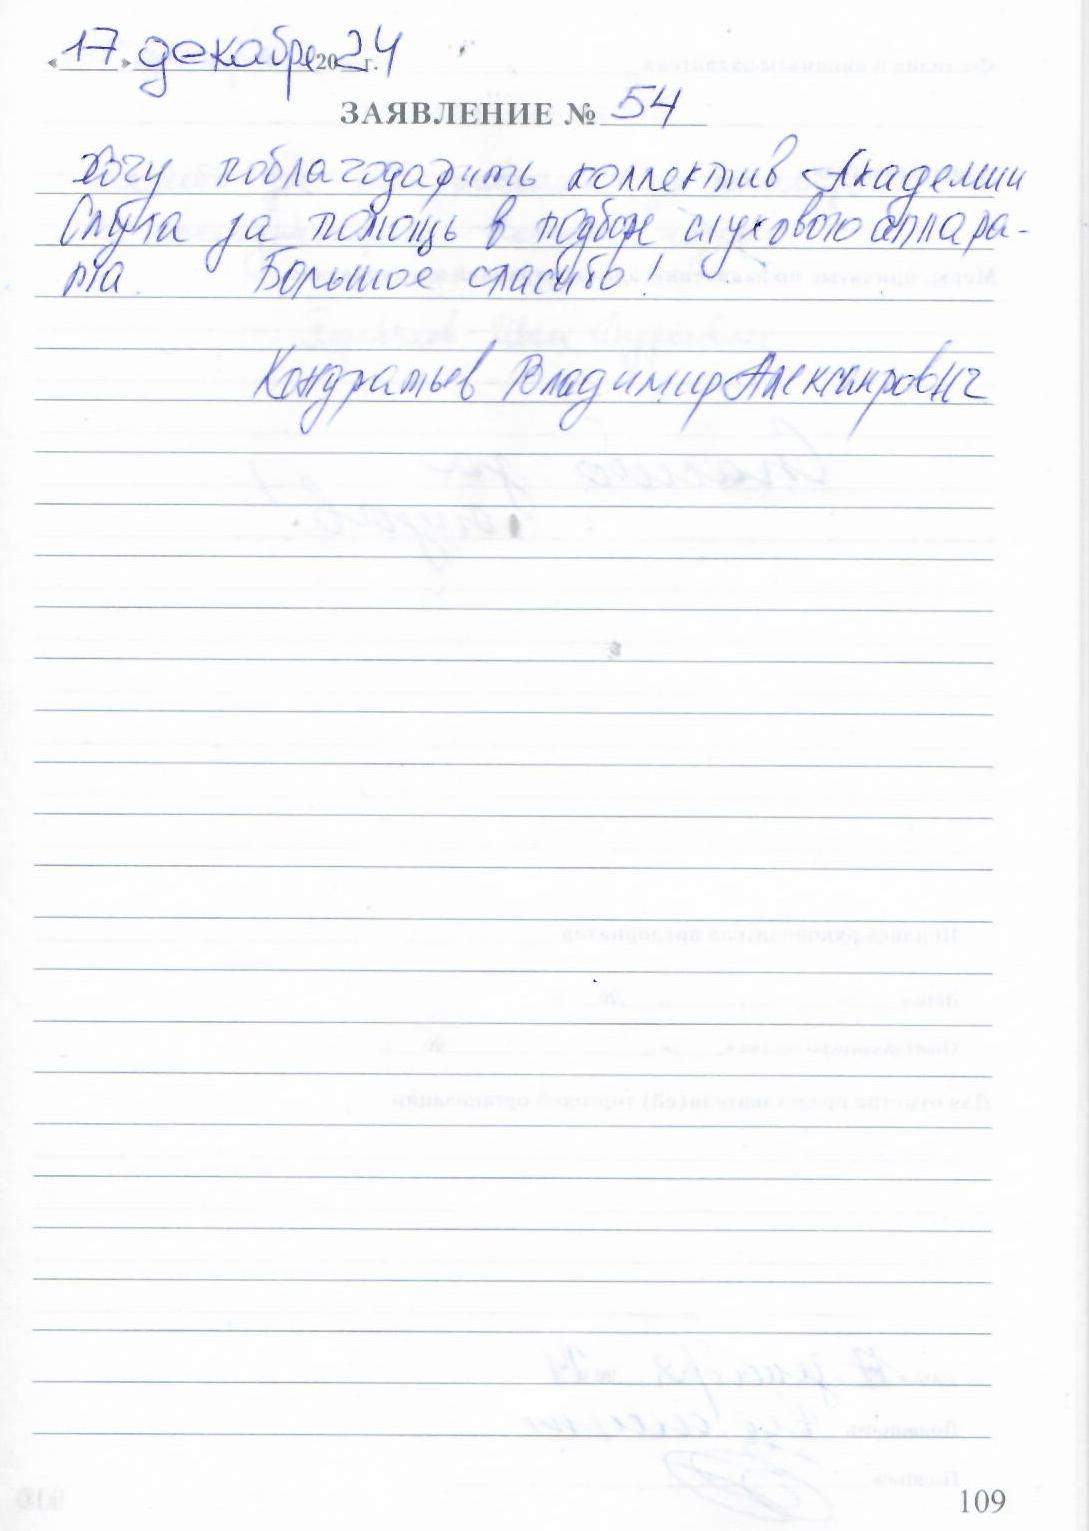 «17» декабря 2024 г.
ЗАЯВЛЕНИЕ № 54
Хочу поблагодарить коллектив Академии
Слуха за помощь в подборе слухового аппара-
та. Большое спасибо!
Кондратьев Владимир Александрович
109